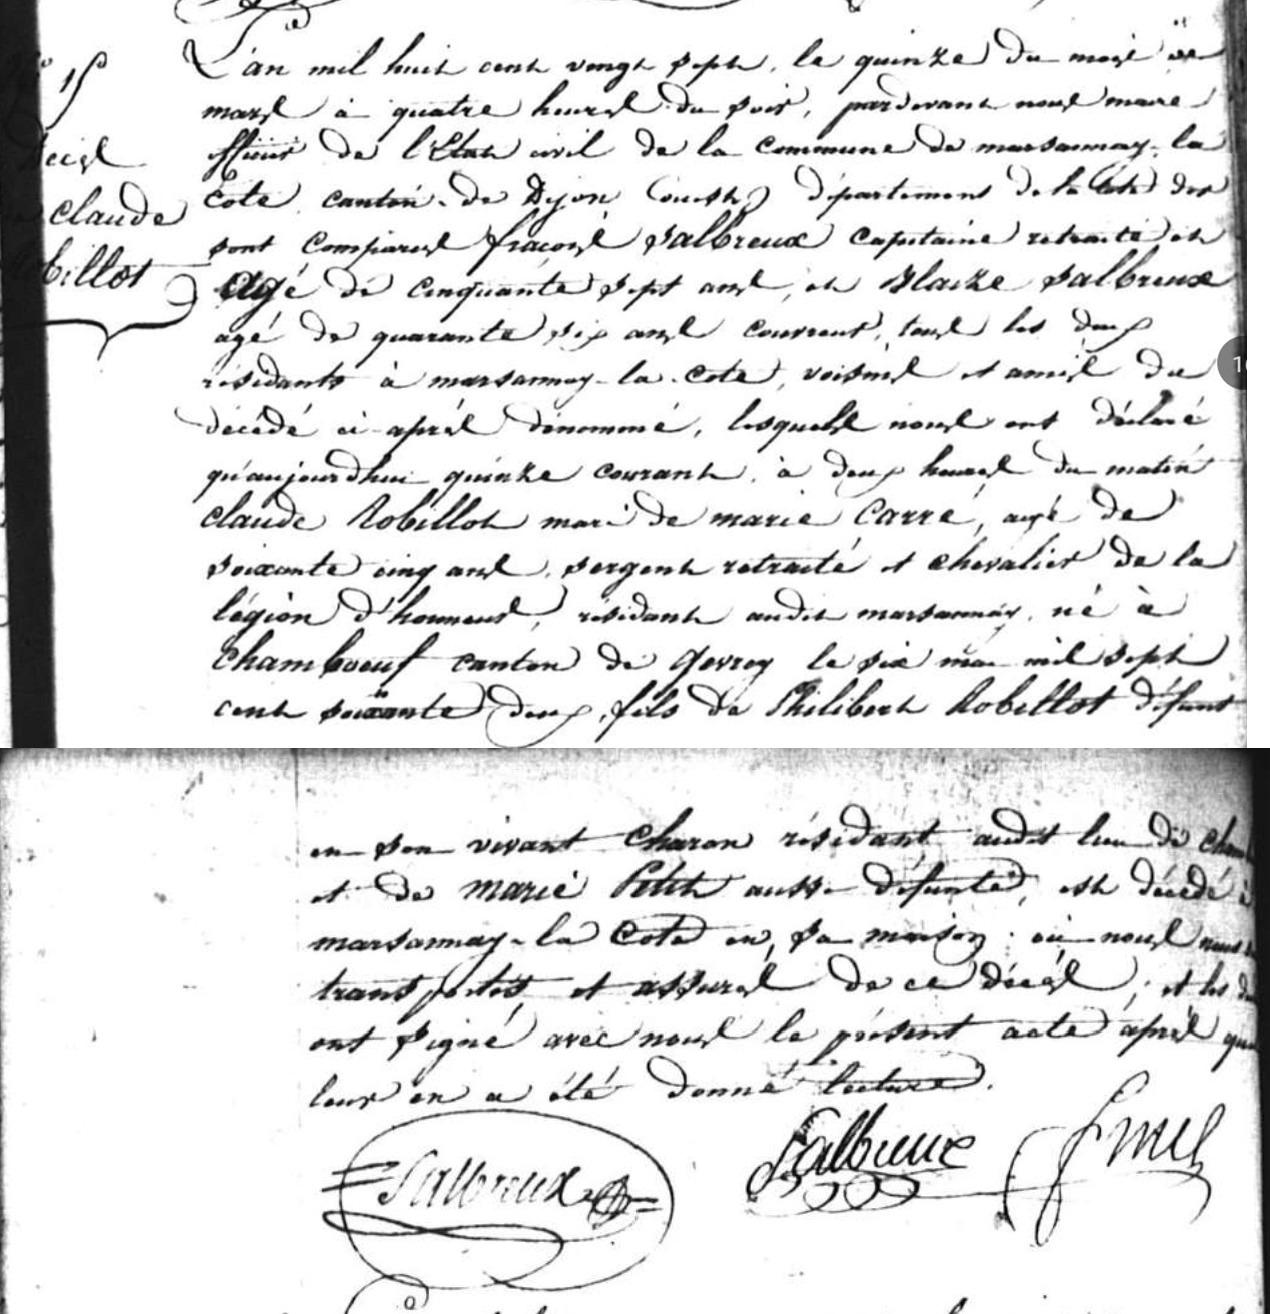 N° 15
décès
de claude
Robillot
L'an mil huit cent vingt sept, le quinze du mois de
mars à quatre heures du soir, pardevant nous maire
officier de l'Etat civil de la commune de marsannay-la
cote canton de Dijon (ouest) département de la Cote dor
sont comparus fracois Salbreux capitaine retraité et
agé de cinquante sept ans, et Blaize Salbreux
agé de quarante six ans courrent, tous les deux
résidants à marsannay-la-cote, voisins et amis du
décédé ci-après dénommé, lesquels nous ont déclaré
qu'aujourdhui quinze courant, à deux heures du matin
claude Robillot mari de marie Carré, agé de
soixante cinq ans, sergent retraité et chevalier de la
légion d'honneur, résidant audit marsannay, né à
chamboeuf canton de gevrey le six mai mil sept
cent soixante deux, fils de Philibert Robillot défunt
en son vivant charon résidant audit lieu de cham
et de marie Petit aussi défunte, est décédé à
marsannay-la Cote en sa maison où nous nous
transportés et assurés de ce décès, et les
ont signé avec nous le présent acte après que
leur en a été donné lecture.
Salbreux
Salbreux